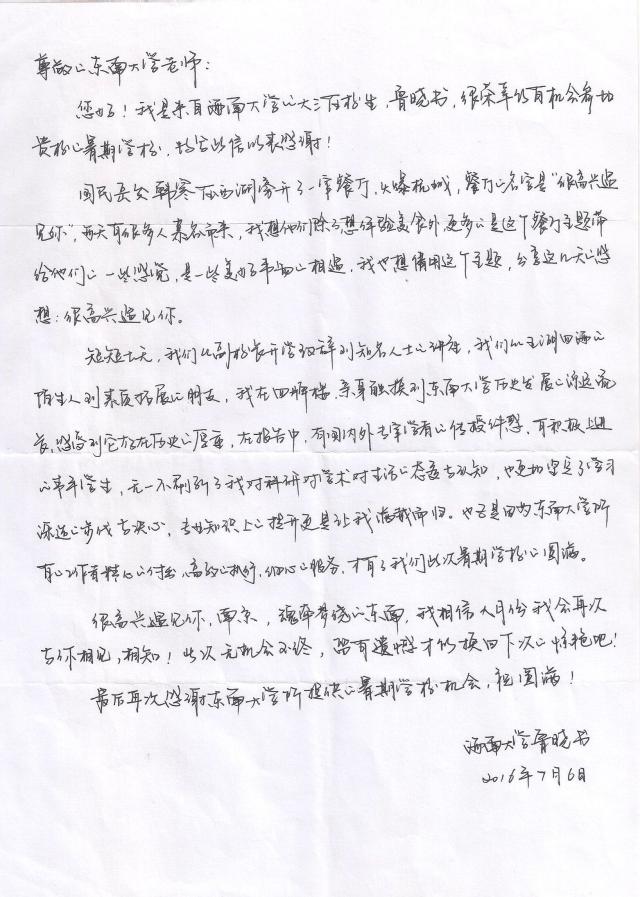 尊敬的东南大学老师：
您好！我是来自海南大学的大三在校生，鲁晓书，很荣幸能有机会参加
贵校的暑期学校，特写此信以表感谢！
国民岳父韩寒在西湖旁开了一家餐厅，火爆杭城，餐厅的名字是“很高兴遇
见你”，每天有很多人慕名而来，我想他们除了想体验美食外，更多的是这个餐厅主题带
给他们的一些感觉，是一些美好事物的相遇，我也想借用这个主题，分享这几天的感
想：很高兴遇见你。
短短七天，我们从副校长开学致辞到知名人士的讲座，我们从五湖四海的
陌生人到素质拓展的朋友，我在四牌楼，亲身触摸到东南大学历史发展的源远流
长，感受到它存在历史的厚重，在报告中，有国内外专家学者的传授，有积极上进
的莘莘学生，无一不刷新了我对科研对学术对生活的态度与认知，也更加坚定了学习
深造的步伐与决心，专业知识上的提升更是让我满载而归。也正是因为东南大学所
有工作者精心的付出，高效的执行，细心的服务，才有了我们此次暑期学校的圆满。
很高兴遇见你，南京，魂牵梦绕的东南，我相信八月份我会再次
与你相见，相知！此次无机会，留有遗憾才能换回下次的惊艳吧！
最后再次感谢东南大学所提供的暑期学校机会，祝圆满！
海南大学鲁晓书
2016年7月6日